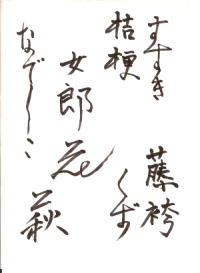 すすき
桔梗
女郎花
なでしこ
藤袴
くず
萩